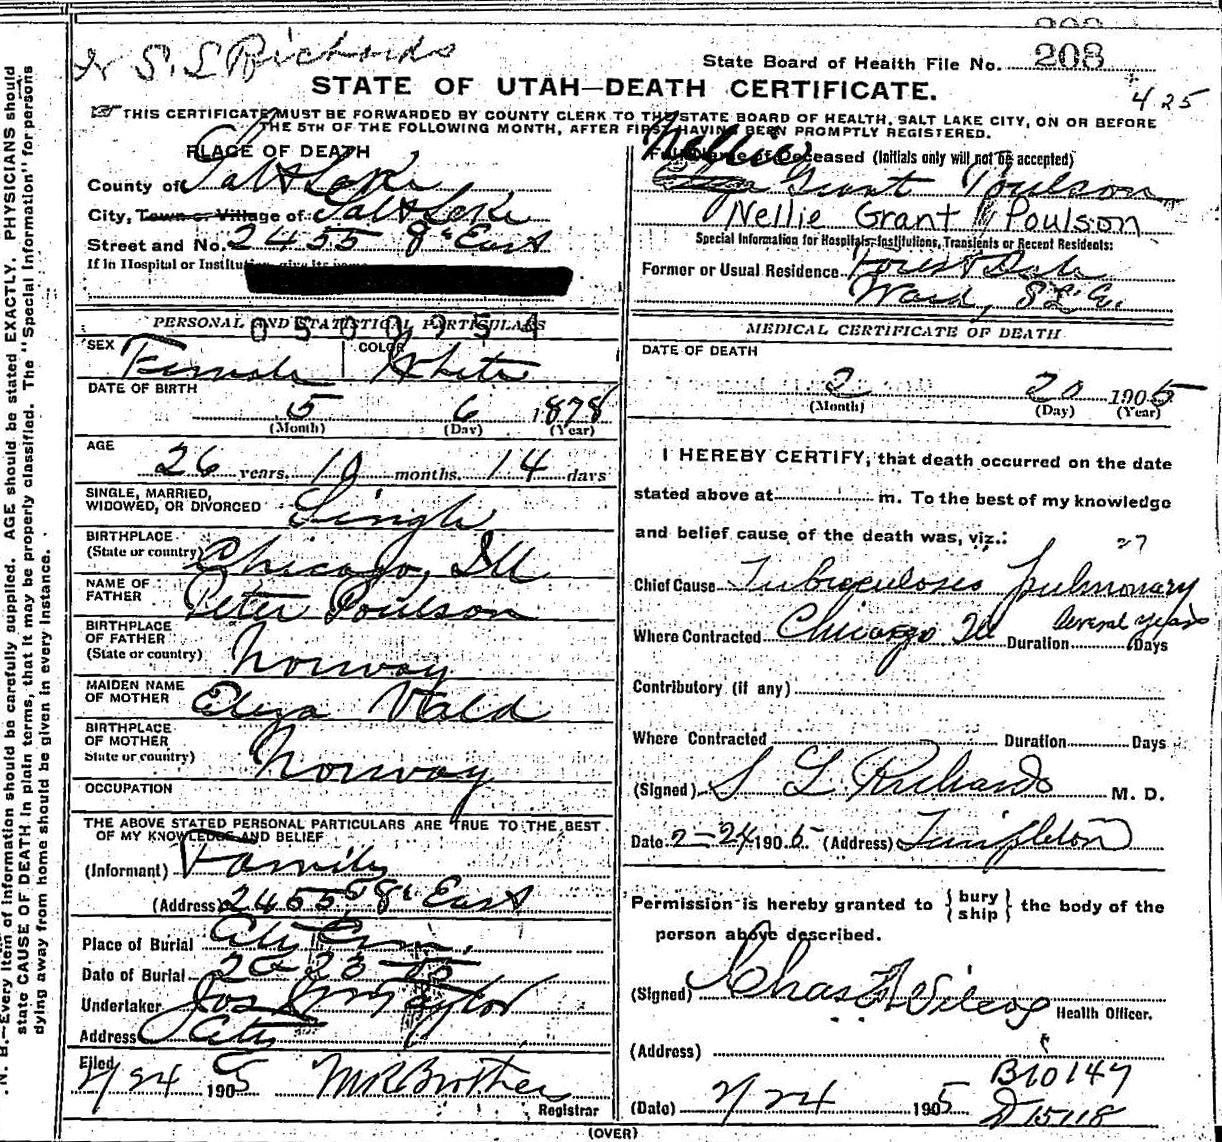 208
S. L Richards
State Board of Health File No. 208
STATE OF UTAH—DEATH CERTIFICATE.
425
THIS CERTIFICATE MUST BE FORWARDED BY COUNTY CLERK TO THE STATE BOARD OF HEALTH, SALT LAKE CITY, ON OR BEFORE
THE 5TH OF THE FOLLOWING MONTH, AFTER FIRST HAVING BEEN PROMPTLY REGISTERED.
PLACE OF DEATH
County of Salt Lake
City, Town or Village of Salt Lake
Street and No. 2455 8th East
If in Hospital or Institution, give its
Nellie
Full Name of Deceased (Initials only will not be accepted)
Grant Poulson
Nellie Grant Poulson
Special Information for Hospitals, Institutions, Transients or Recent Residents:
Former or Usual Residence Forest Dale
Ward, SL Co.
PERSONAL AND STATISTICAL PARTICULARS
0500254
SEX Female COLOR White
DATE OF BIRTH
5 6 1878
(Month) (Day) (Year)
AGE
26 years. 10 months. 14 days
SINGLE, MARRIED,
WIDOWED, OR DIVORCED Single
BIRTHPLACE
(State or country) Chicago, Ill
NAME OF
FATHER Peter Poulson
BIRTHPLACE
OF FATHER
(State or country) Norway
MAIDEN NAME
OF MOTHER Eliza Vald
BIRTHPLACE
OF MOTHER
State or country) Norway
OCCUPATION
THE ABOVE STATED PERSONAL PARTICULARS ARE TRUE TO THE BEST
OF MY KNOWLEDGE AND BELIEF
(Informant) Family
(Address) 2455 8th East
Place of Burial City Cem.
Date of Burial 2-23-05
Undertaker Jos Wm Taylor
Address City
Filed
2/24 1905 M R Brothers
Registrar
MEDICAL CERTIFICATE OF DEATH
DATE OF DEATH
2 20 1905
(Month) (Day) (Year)
I HEREBY CERTIFY, that death occurred on the date
stated above at m. To the best of my knowledge
and belief cause of the death was, viz.:
27
Chief Cause Tuberculosis pulmonary
Where Contracted Chicago Ill Duration Several years Days
Contributory (if any)
Where Contracted Duration Days
(Signed) S L Richards M. D.
Date 2-24 1905. (Address) Templeton
Permission is hereby granted to { bury
ship } the body of the
person above described.
(Signed) Chas Wilcox Health Officer.
(Address)
B10147
(Date) 2/24 1905 D15118
(OVER)
N. B.—Every item of information should be carefully supplied. AGE should be stated EXACTLY. PHYSICIANS should
state CAUSE OF DEATH in plain terms, that it may be properly classified. The "Special Information" for persons
dying away from home should be given in every instance.